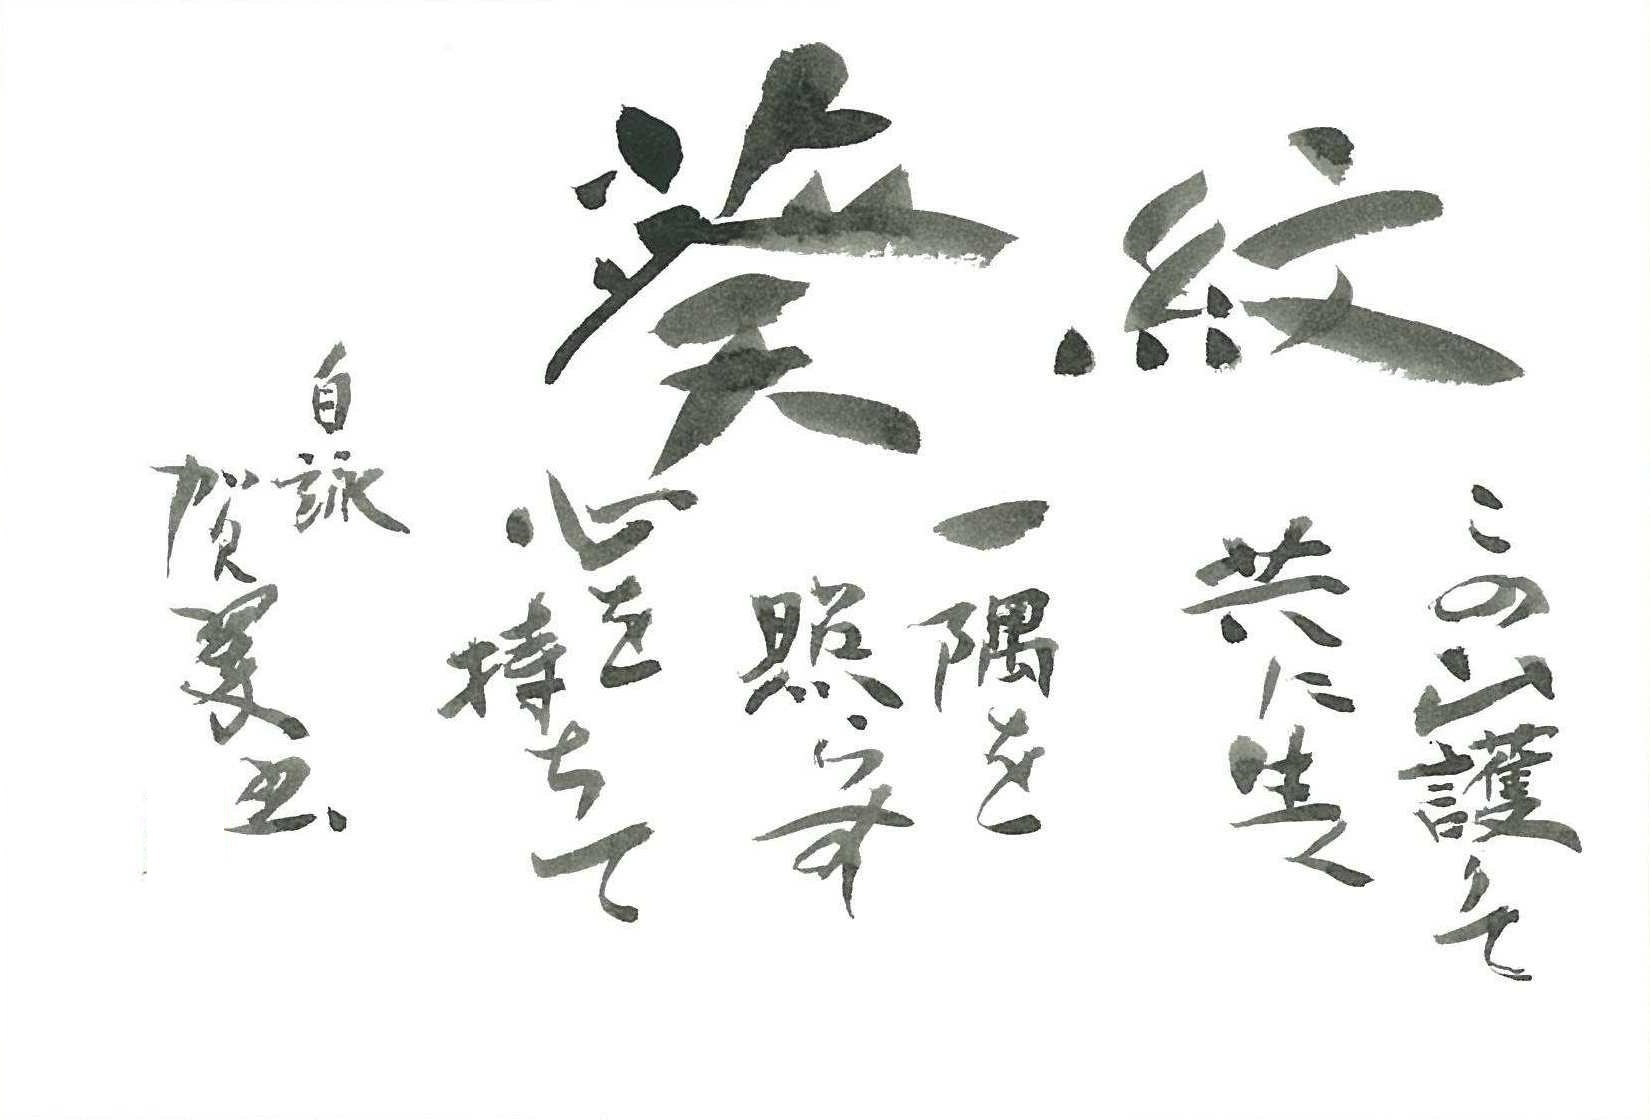 紋葵
この山護りて
共に生く
一隅を
照らす
心を
持ちて
自詠
賀